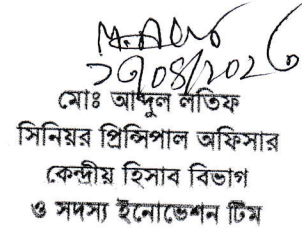 মোঃ আব্দুল লতিফ
সিনিয়র প্রিন্সিপাল অফিসার
কেন্দ্রীয় হিসাব বিভাগ
ও সদস্য ইনোভেশন টিম